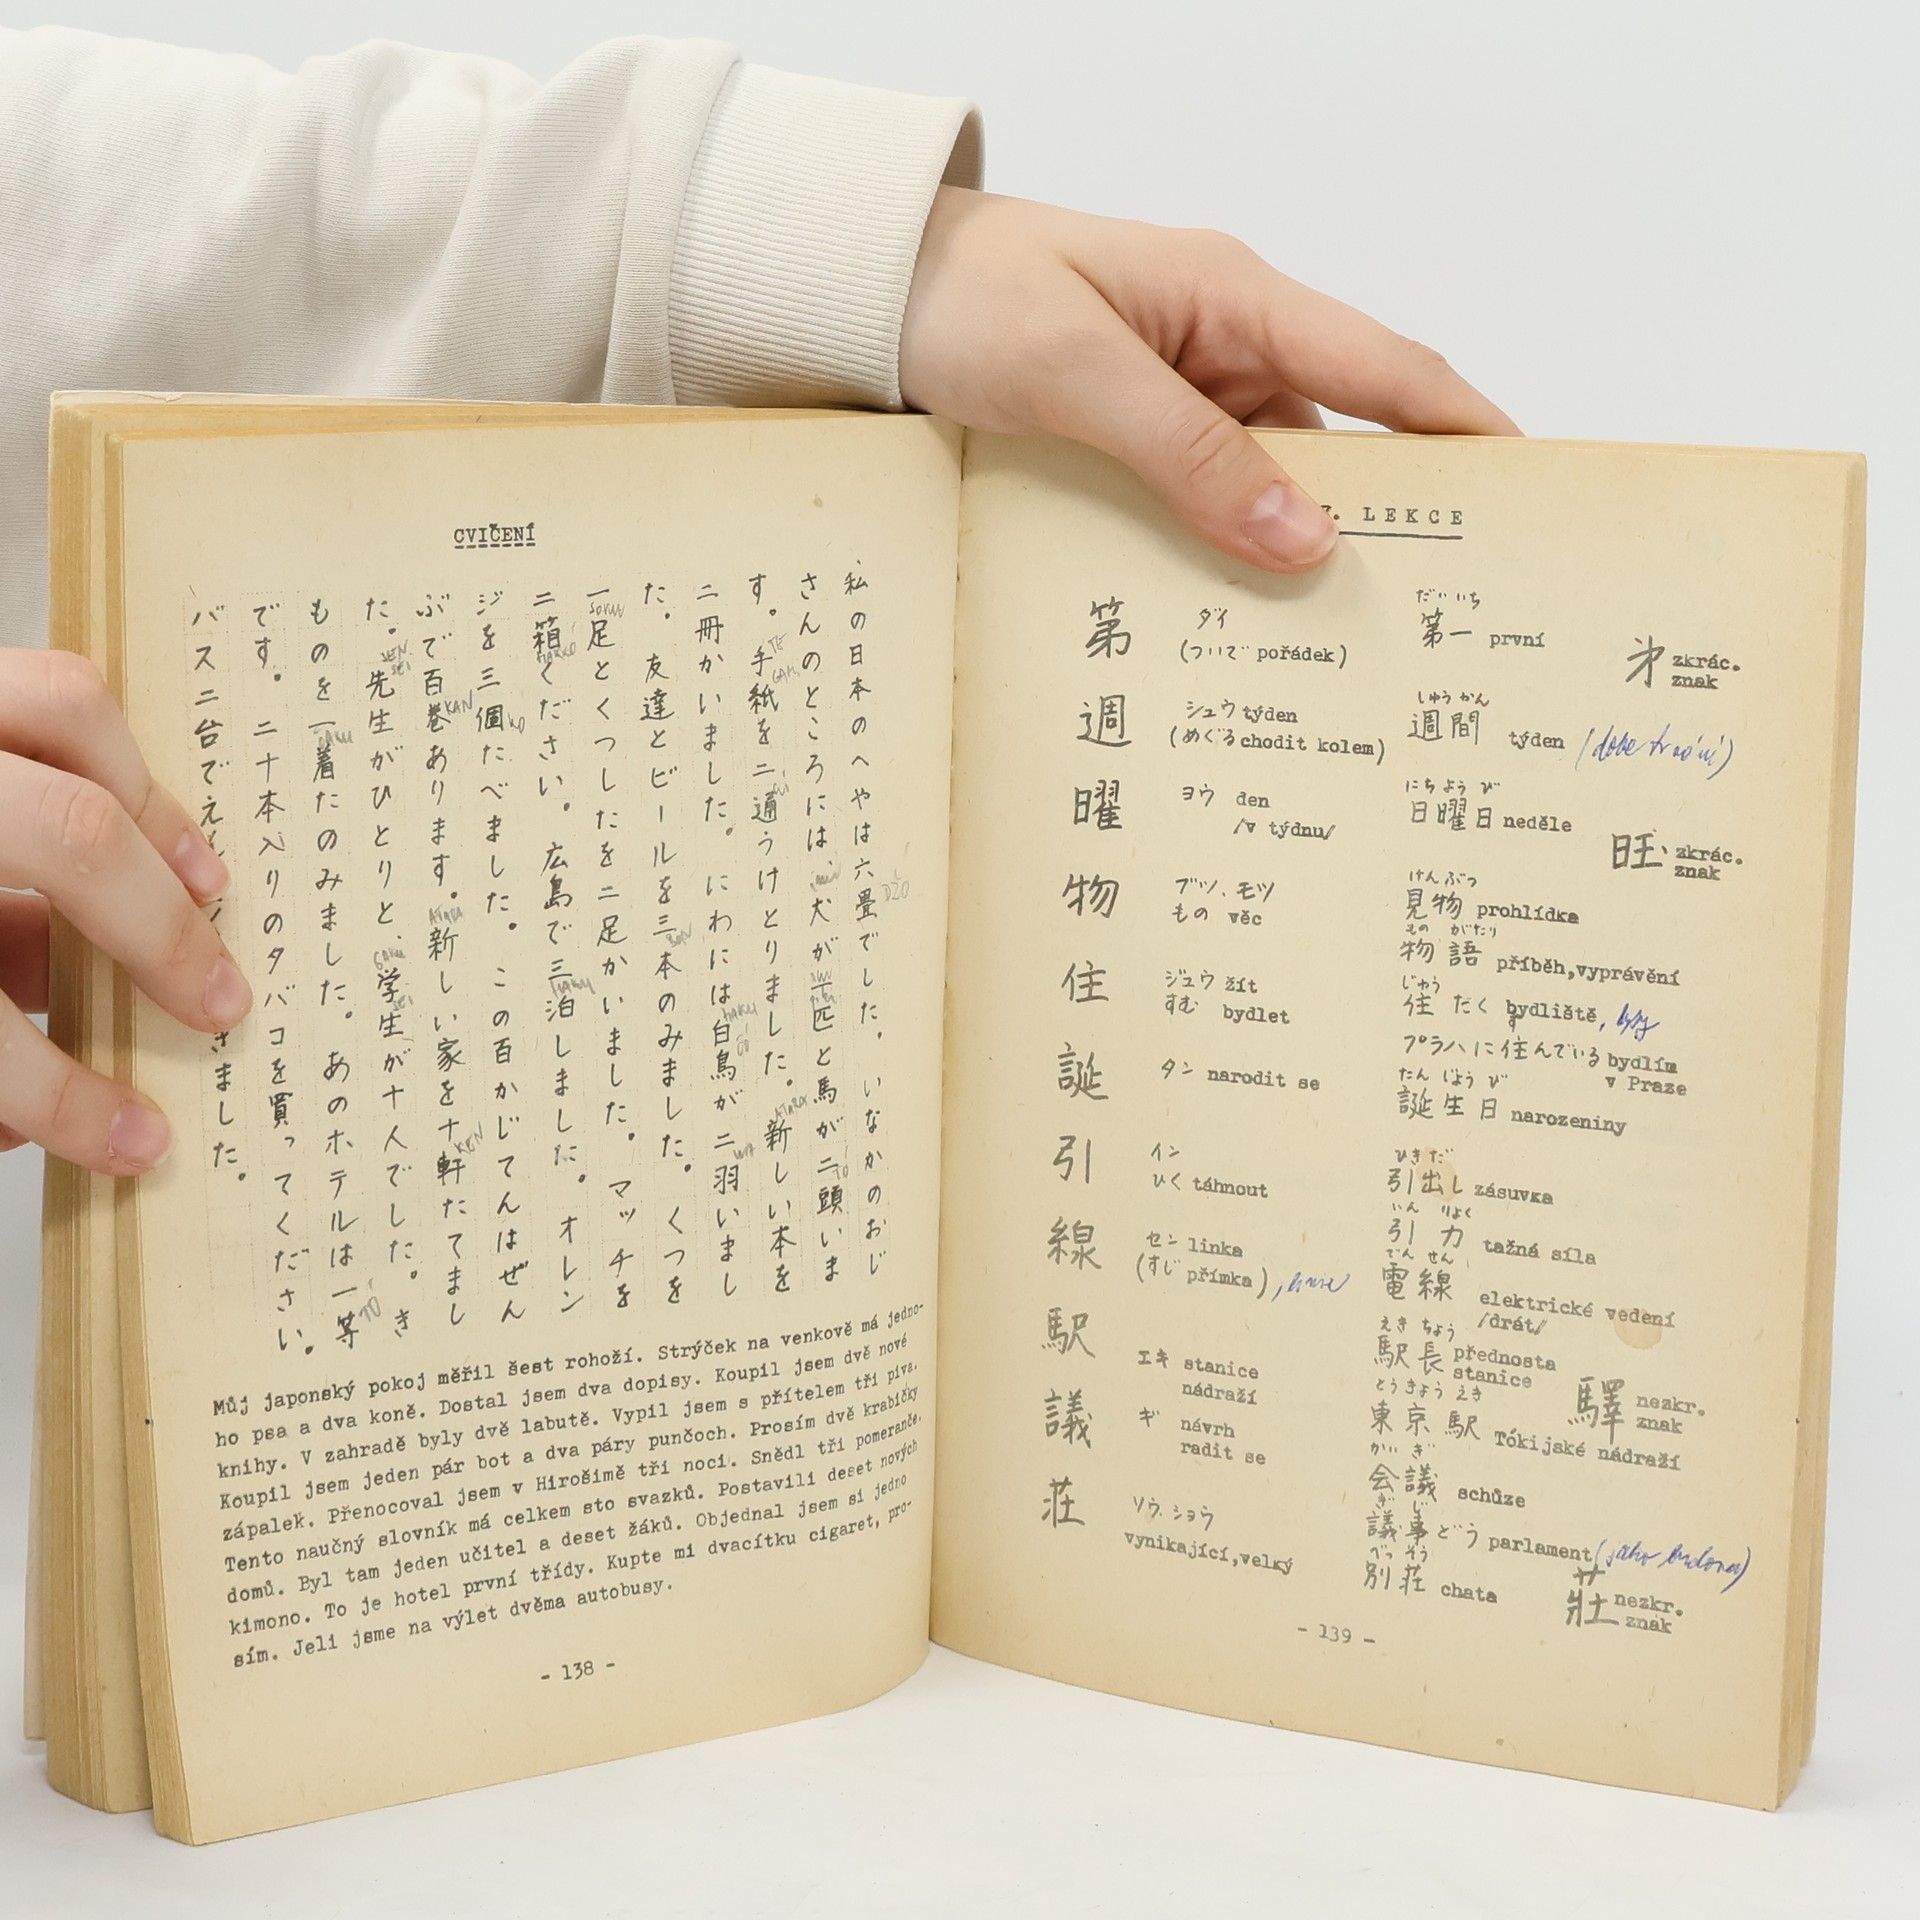 CVIČENÍ
私の日本のへやは六畳でした。いなかのおじ
さんのところには犬が二匹と馬が二頭いま
す。手紙を二通うけとりました。新しい本を
二冊かいました。にわには白鳥が二羽いまし
た。友達とビールを三本のみました。くつを
一足とくつしたを二足かいました。マッチを
二箱ください。広島で三泊しました。オレン
ジを三個たべました。この百かじてんはぜん
ぶで百巻あります。新しい家を十軒たてまし
た。先生がひとりと、学生が十人でした。き
ものを一着たのみました。あのホテルは一等
です。二十本入りのタバコを買ってください。
バス二台でえ きました。
Můj japonský pokoj měřil šest rohoží. Strýček na venkově má jedno-
ho psa a dva koně. Dostal jsem dva dopisy. Koupil jsem dvě nové
knihy. V zahradě byly dvě labutě. Vypil jsem s přítelem tři piva.
Koupil jsem jeden pár bot a dva páry punčoch. Prosím dvě krabičky
zápalek. Přenocoval jsem v Hirošimě tři noci. Snědl tři pomeranče.
Tento naučný slovník má celkem sto svazků. Postavili deset nových
domů. Byl tam jeden učitel a deset žáků. Objednal jsem si jedno
kimono. To je hotel první třídy. Kupte mi dvacítku cigaret, pro-
sím. Jeli jsme na výlet dvěma autobusy.
- 138 -
7. LEKCE
第 ダイ (ついで pořádek) だいいち 第一 první 㐧 zkrác. znak
週 シュウ týden (めぐる chodit kolem) しゅうかん 週間 týden
曜 ヨウ den /v týdnu/ にちようび 日曜日 neděle 旺 zkrác. znak
物 ブツ、モツ もの věc けんぶつ 見物 prohlídka
ものがたり 物語 příběh, vyprávění
住 ジュウ žít すむ bydlet じゅう 住たく bydliště, byt
プラハに住んでいる bydlím v Praze
誕 タン narodit se たんじょうび 誕生日 narozeniny
引 イン ひく táhnout ひきだ 引出し zásuvka
いんりょく 引力 tažná síla
線 セン linka (すじ přímka) でんせん 電線 elektrické vedení /drát/
駅 エキ stanice nádraží えきちょう 駅長 přednosta stanice
とうきょうえき 東京駅 Tókijské nádraží 驛 nezkr. znak
議 ギ návrh radit se かいぎ 会議 schůze
ぎじ 議事どう parlament
荘 ソウ、ショウ vynikající, velký べっそう 別荘 chata 莊 nezkr. znak
- 139 -